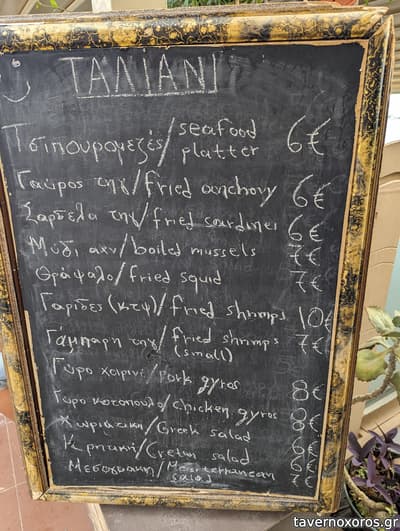 ΤΑΛΙΑΝΙ
Τσιπουρομεζές/seafood platter 6€
Γαύρος τηγ/fried anchovy 6€
Σαρδελα τηγ/fried sardines 6€
Μύδι αχν/boiled mussels 7€
Θράψαλο/fried squid 7€
Γαρίδες (κτψ)/fried shrimps 10€
Γάμπαρη τηγ/fried shrimps (small) 7€
Γύρο χοιρινό/Pork gyros 8€
Γύρο κοτοπουλο/chicken gyros 8€
Χωριατικη/Greek salad 6€
Κρητικη/Cretan salad 6€
Μεσογειακη/Mediterranean salad 7€
tavernoxoros.gr